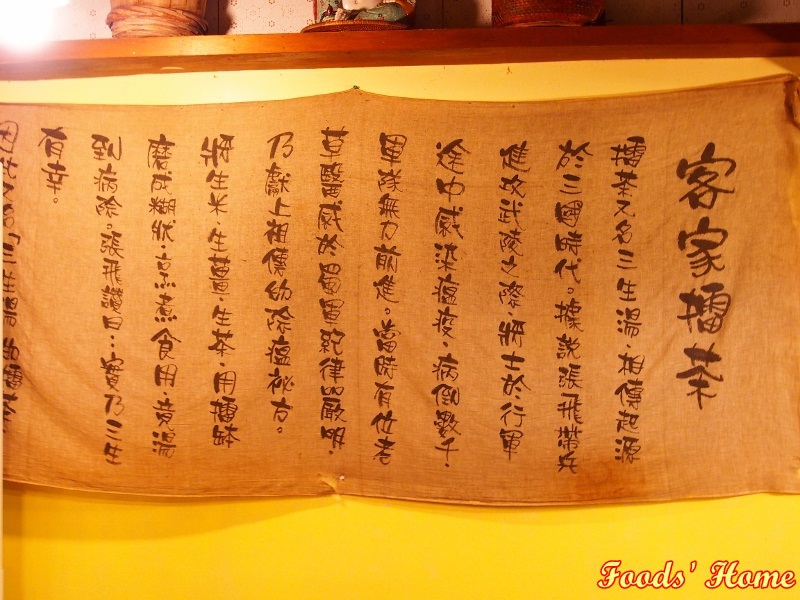 客家擂茶
擂茶又名三生湯·相傳起源
於三國時代。據說張飛帶兵
進攻武陵之際·將士於行軍
途中感染瘟疫·病倒數千·
軍隊無力前進。當時有位老
草醫感於蜀軍紀律嚴明·
乃獻上祖傳的除瘟祕方。
將生米·生薑·生茶·用擂缽
磨成糊狀·烹煮食用·竟湯
到病除。張飛讚曰：實乃三生
有幸。
因此又名「三生湯
Foods' Home